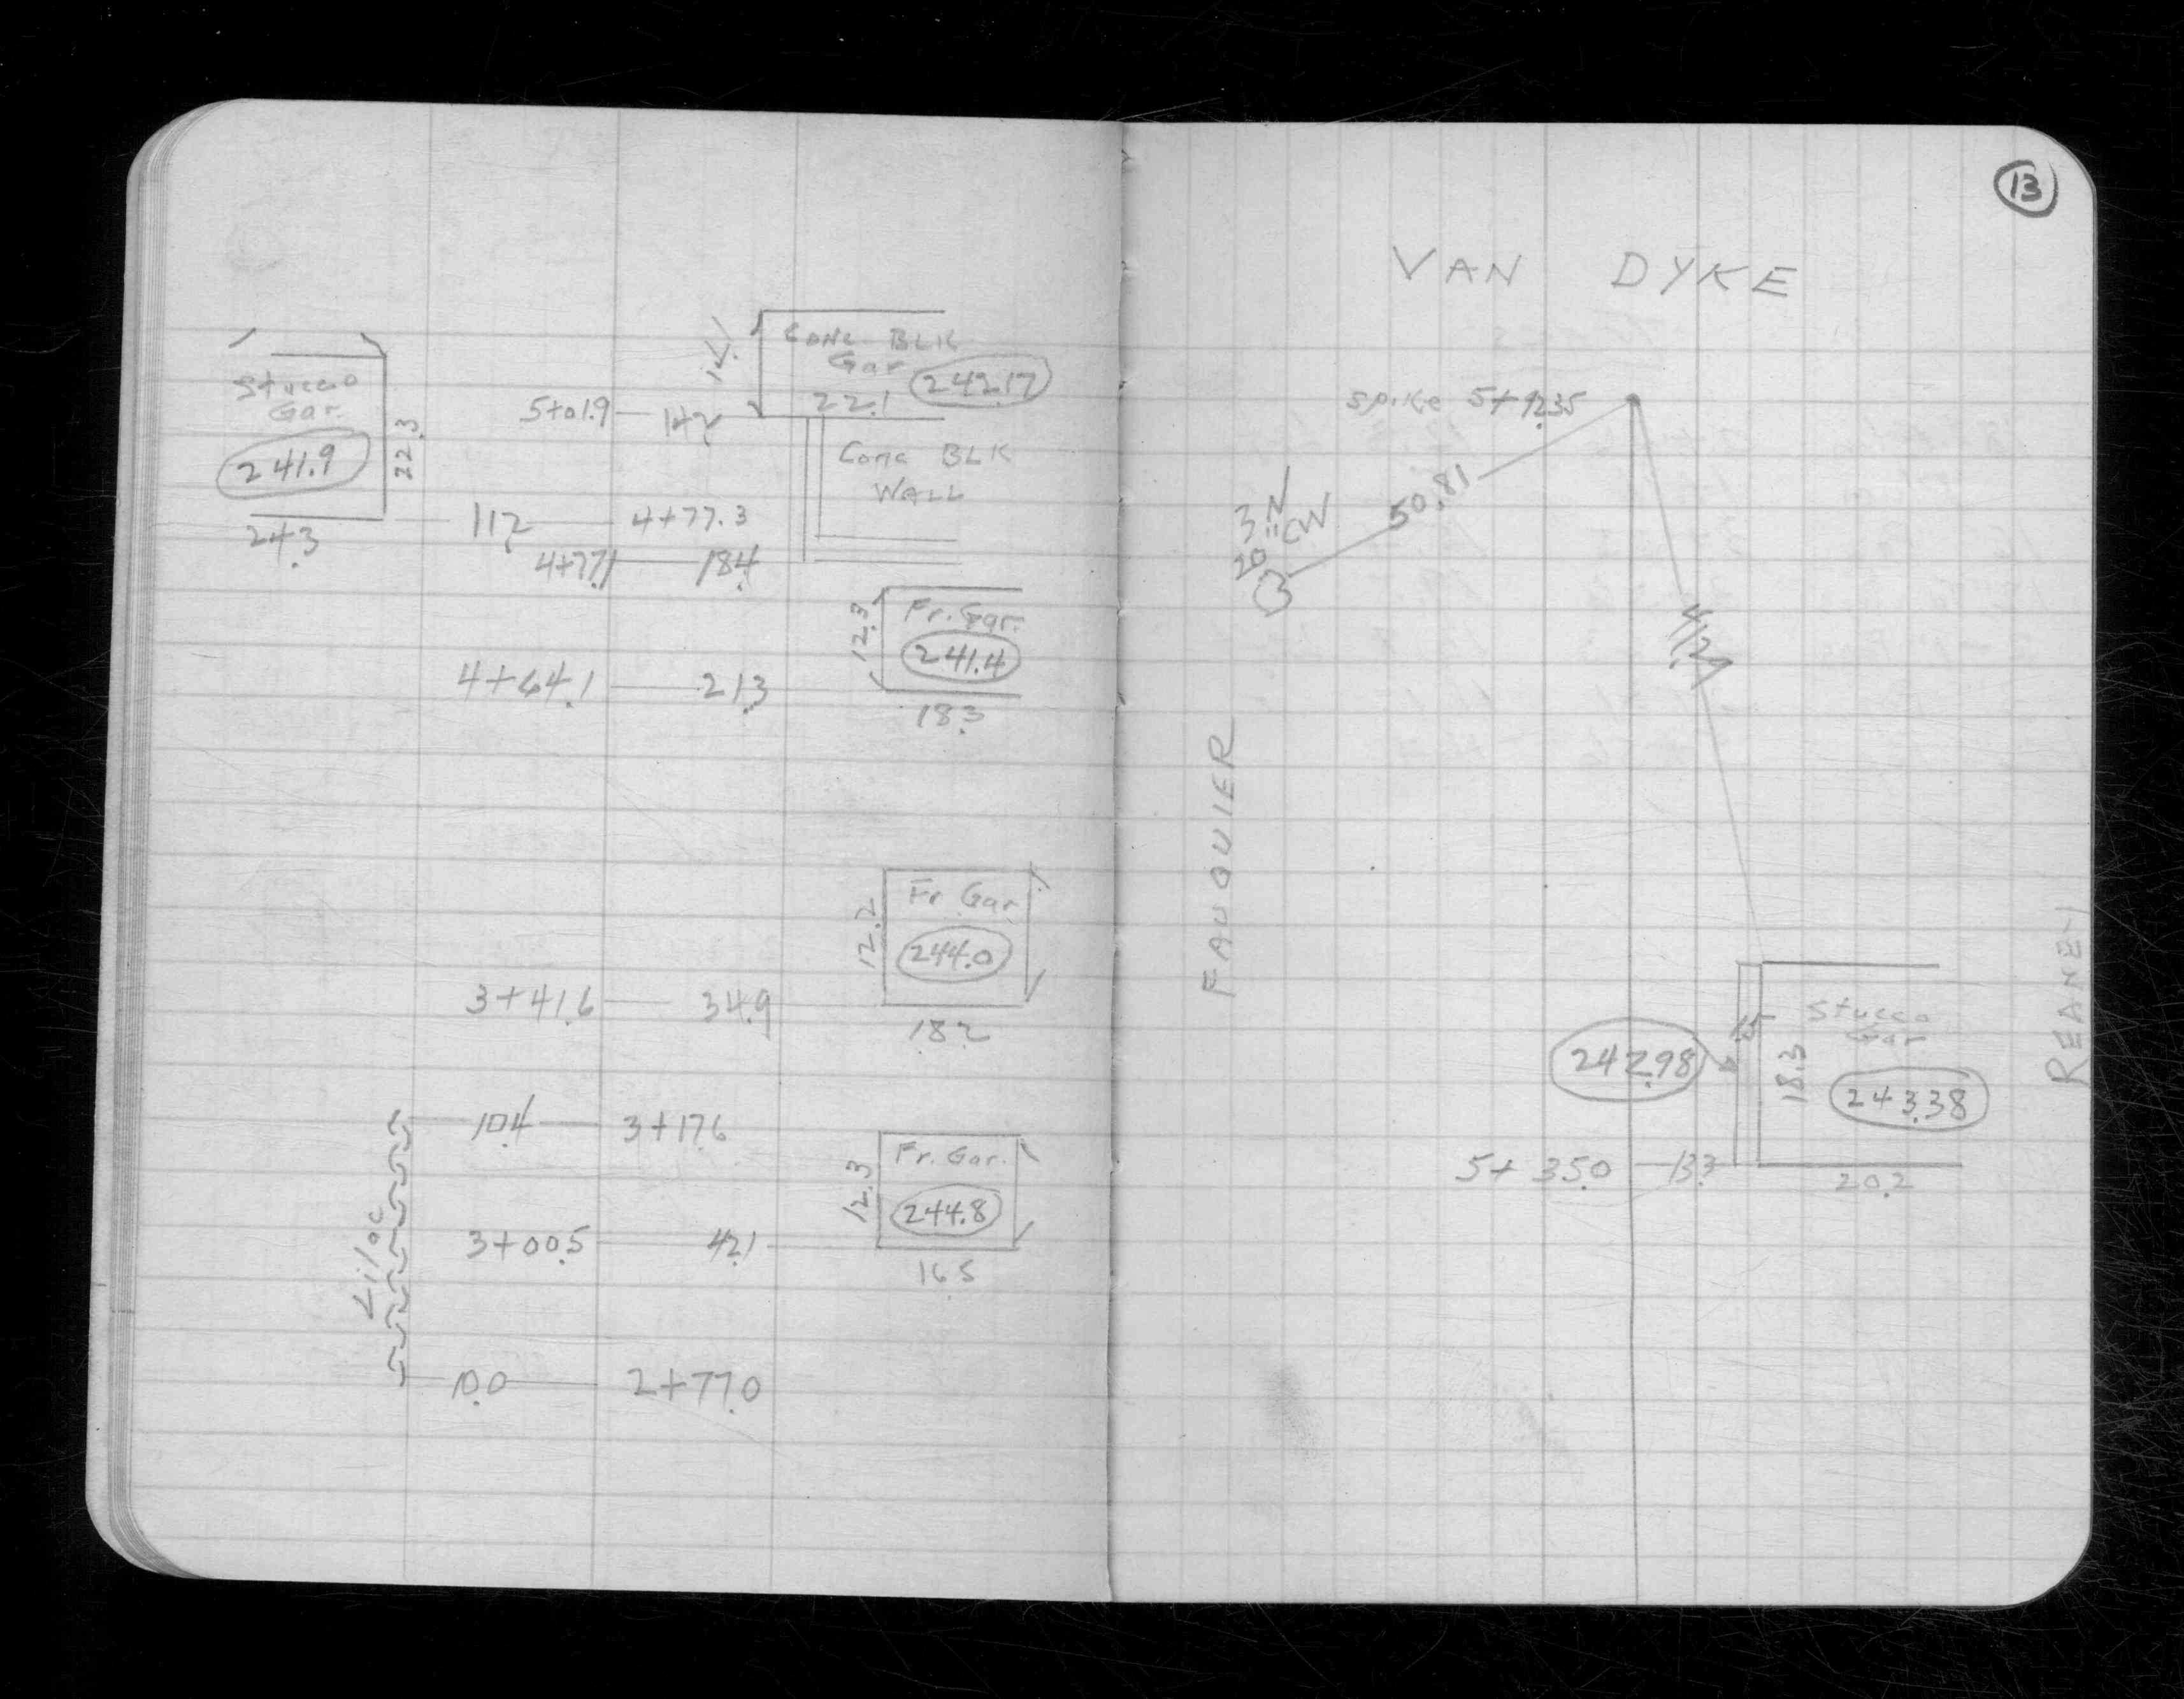 Stucco
Gar.
241.9
22.3
24.3
Conc BLK
Gar
242.17
22.1
5+01.9 14.2
Conc BLK
WALL
11.2 4+77.3
4+77.1 18.4
12.3
Fr. Gar.
241.4
4+64.1 21.3
18.3
12.2
Fr Gar
244.0
3+41.6 34.9
18.2
Lilac
10.4 3+17.6
12.3
Fr. Gar.
244.8
3+00.5 42.1
16.5
10.0 2+77.0
13
VAN DYKE
spike 5+12.35
50.81
3 N
20" CW
FAUQUIER
REANEY
Stucco
Gar
18.3
242.98
243.38
5+35.0 13.3
20.2